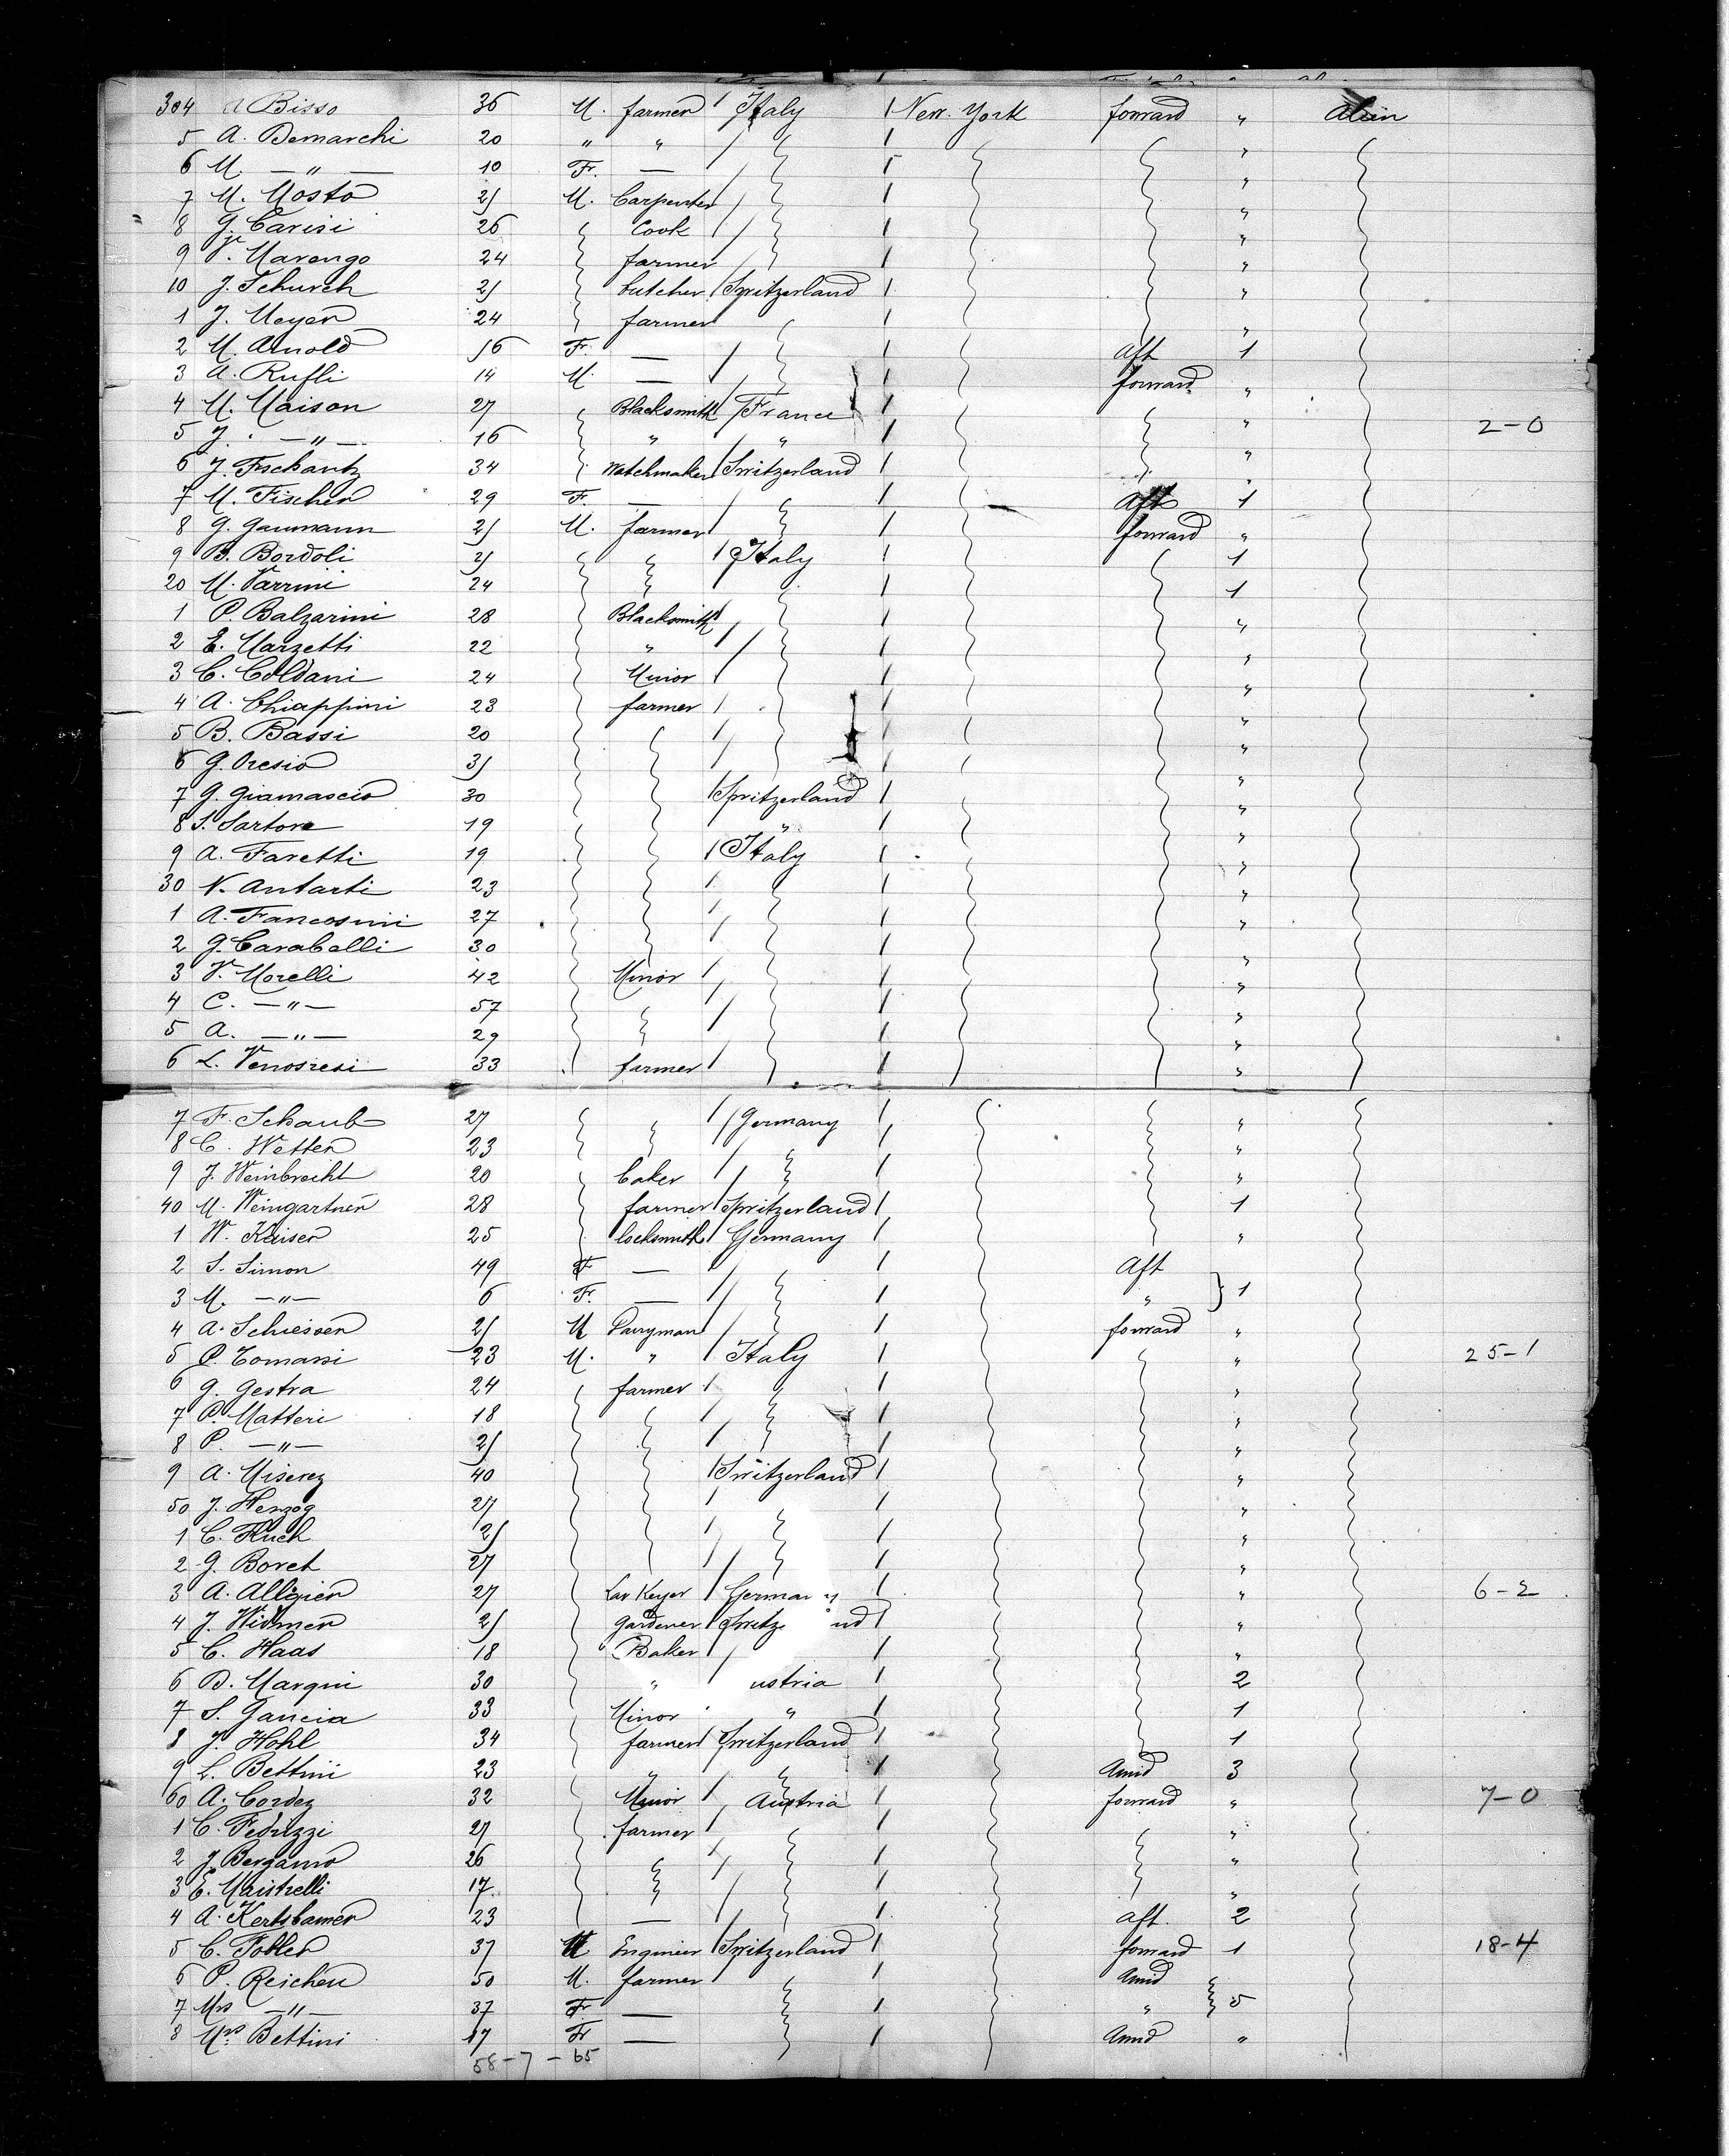 304 A Bisso 36 M. farmer Italy New York forward " Alien
5 A. Demarchi 20 " " "
6 M. — " — 10 Fr. — "
7 M. Mosto 21 M. Carpenter "
8 G. Carisi 26 Cook "
9 P. Marengo 24 farmer "
10 J. Schurch 21 butcher Switzerland "
1 J. Meyer 24 farmer "
2 M. Arnold 16 Fr. — Aft 1
3 A. Rufli 14 M. — forward "
4 M. Maison 27 Blacksmith France "
5 J. — " — 16 " " " 2-0
6 J. Tschantz 34 Watchmaker Switzerland "
7 M. Fischer 29 Fr. — Aft 1
8 G. Gaumann 21 M. farmer forward "
9 B. Bordoli 21 Italy 1
20 M. Varrini 24 1
1 P. Balzarini 28 Blacksmith "
2 E. Marzetti 22 " "
3 C. Coldani 24 Minor "
4 A. Chiappini 23 farmer "
5 B. Bassi 20 "
6 G. Oresio 31 "
7 G. Giamascio 30 Switzerland "
8 S. Sartore 19 " "
9 A. Faretti 19 Italy "
30 N. Antarti 23 "
1 A. Francosini 27 "
2 G. Caraballi 30 "
3 V. Morelli 42 Minor "
4 C. — " — 57 "
5 A. — " — 29 "
6 L. Venosresi 33 farmer "
7 F. Schaub 27 " Germany "
8 C. Wetter 23 "
9 J. Weinbrecht 20 baker "
40 M. Weingartner 28 farmer Switzerland 1
1 W. Kaiser 25 locksmith Germany "
2 S. Simon 49 F — Aft
3 M. — " — 6 Fr. — " } 1
4 A. Schiesser 21 M Dairyman forward "
5 P. Tomassi 23 M. " Italy " 25-1
6 G. Gestra 24 farmer "
7 P. Matteri 18 "
8 P. — " — 21 "
9 A. Miserez 40 Switzerland "
50 J. Herzog 27 "
1 C. Fluck 21 "
2 G. Boret 27 "
3 A. Allgier 27 Germany " 6-2
4 J. Widmer 21 Gardener Switze nd "
5 C. Haas 18 Baker "
6 D. Marqui 30 " ustria 2
7 S. Gancia 33 Minor " 1
8 J. Hohl 34 farmer Switzerland 1
9 L. Bettini 23 " " Amid 3
60 A. Cordez 32 Minor Austria forward " 7-0
1 C. Fedrizzi 27 farmer "
2 J. Bergamo 26 "
3 E. Maistrelli 17 "
4 A. Kertsbamer 23 — Aft. 2
5 C. Tobler 37 M Engineer Switzerland forward 1 18-4
6 P. Reichen 50 M. farmer Amid
7 Mrs — " — 37 Fr — " } 5
8 Mrs Bettini 17 Fr — Amid "
58-7-65